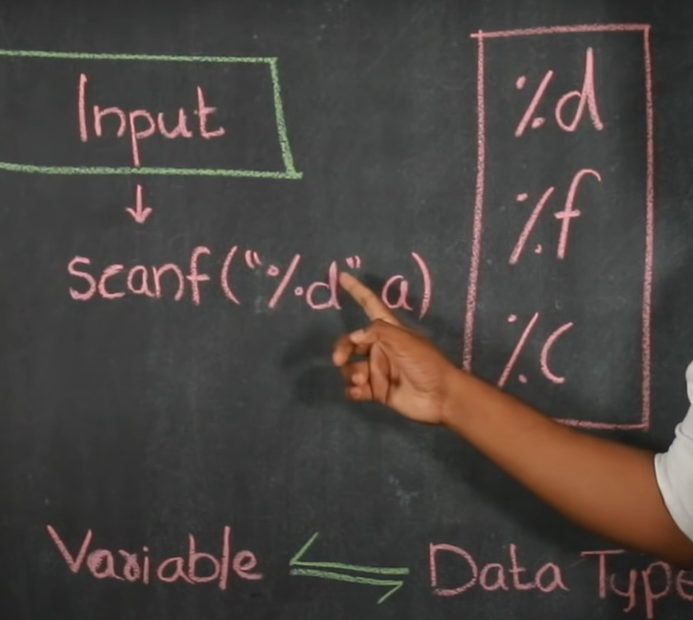 Input
scanf("%d" a)
%d
%f
%c
Variable
Data Type